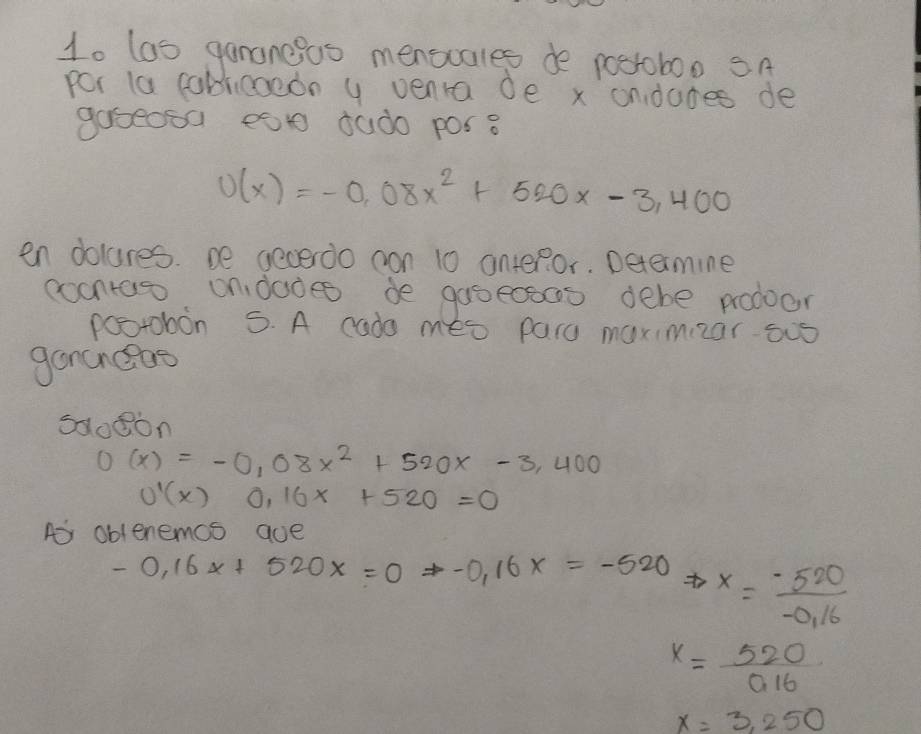 1. las ganancias mensuales de postobon S.A
Por la fabricación y venta de x unidades de
gaseosa esta dado por:
U(x) = -0,08x² + 520x - 3,400
en dolares. De acuerdo con lo anterior. Determine
cuantas unidades de gaseosas debe producir
postobón S. A cada mes para maximizar sus
ganancias
Solución
U(x) = -0,08x² + 520x - 3,400
U'(x) 0,16x + 520 = 0
Así obtenemos que
-0,16x + 520x = 0 → -0,16x = -520 ⇒ x = -520/-0,16
x = 520/0,16
x = 3,250